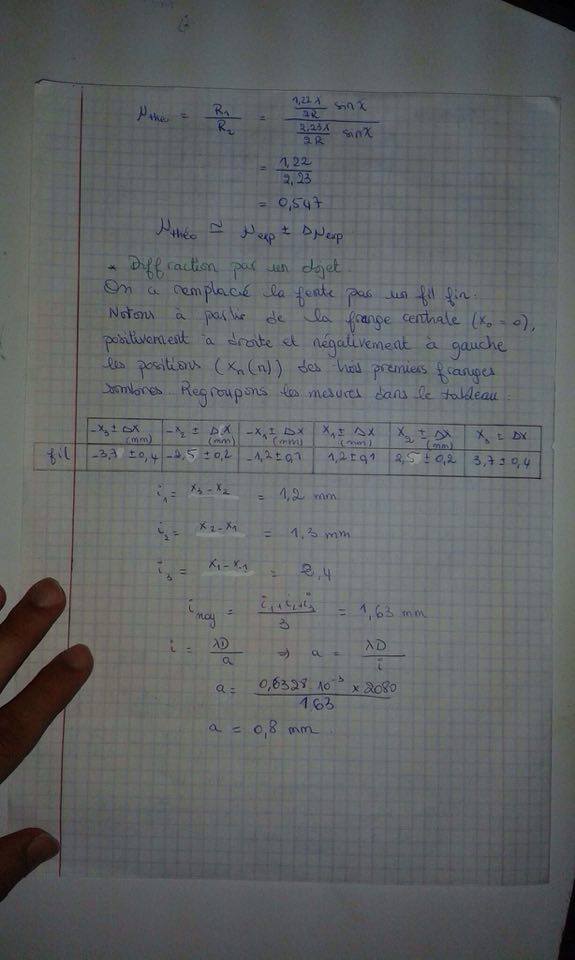 μthéo = R1/R2 = (1,22λ/2R sin χ)/(2,23λ/2R sin χ)
= 1,22/2,23
= 0,547
μthéo ≃ μexp ± Δμexp
* Diffraction par un objet
On a remplacé la fente par un fil fin.
Notons à partir de la frange centrale (x0 = 0),
positivement a droite et négativement à gauche
les positions (xn(n)) des trois premiers franges
sombres. Regroupons les mesures dans le tableau.
-x3 ± Δx (mm) -x2 ± Δx (mm) -x1 ± Δx (mm) x1 ± Δx (mm) x2 ± Δx (mm) x3 ± Δx
fil -3,7 ± 0,4 -2,5 ± 0,2 -1,2 ± 0,1 1,2 ± 0,1 2,5 ± 0,2 3,7 ± 0,4
i1 = x3 - x2 = 1,2 mm
i2 = x2 - x1 = 1,3 mm
i3 = x1 - x-1 = 2,4
imoy = (i1 + i2 + i3)/3 = 1,63 mm
i = λD/a ⇒ a = λD/i
a = 0,6328 · 10⁻³ × 2080/1,63
a = 0,8 mm